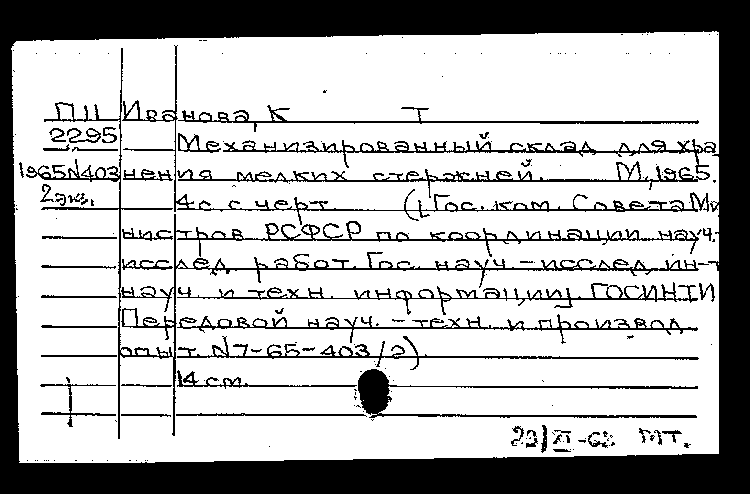 П11 Иванова, К Т
2295 Механизированный склад для хра
1965 N403 нения мелких стержней. М., 1965.
2 экз. 4 с. с черт. ([Гос. ком. Совета Ми
нистров РСФСР по координации науч.-
исслед. работ. Гос. науч.-исслед. ин-т
науч. и техн. информации]. ГОСИНТИ
Передовой науч.-техн. и производ.
опыт. N7-65-403/2).
14 см.
МТ.